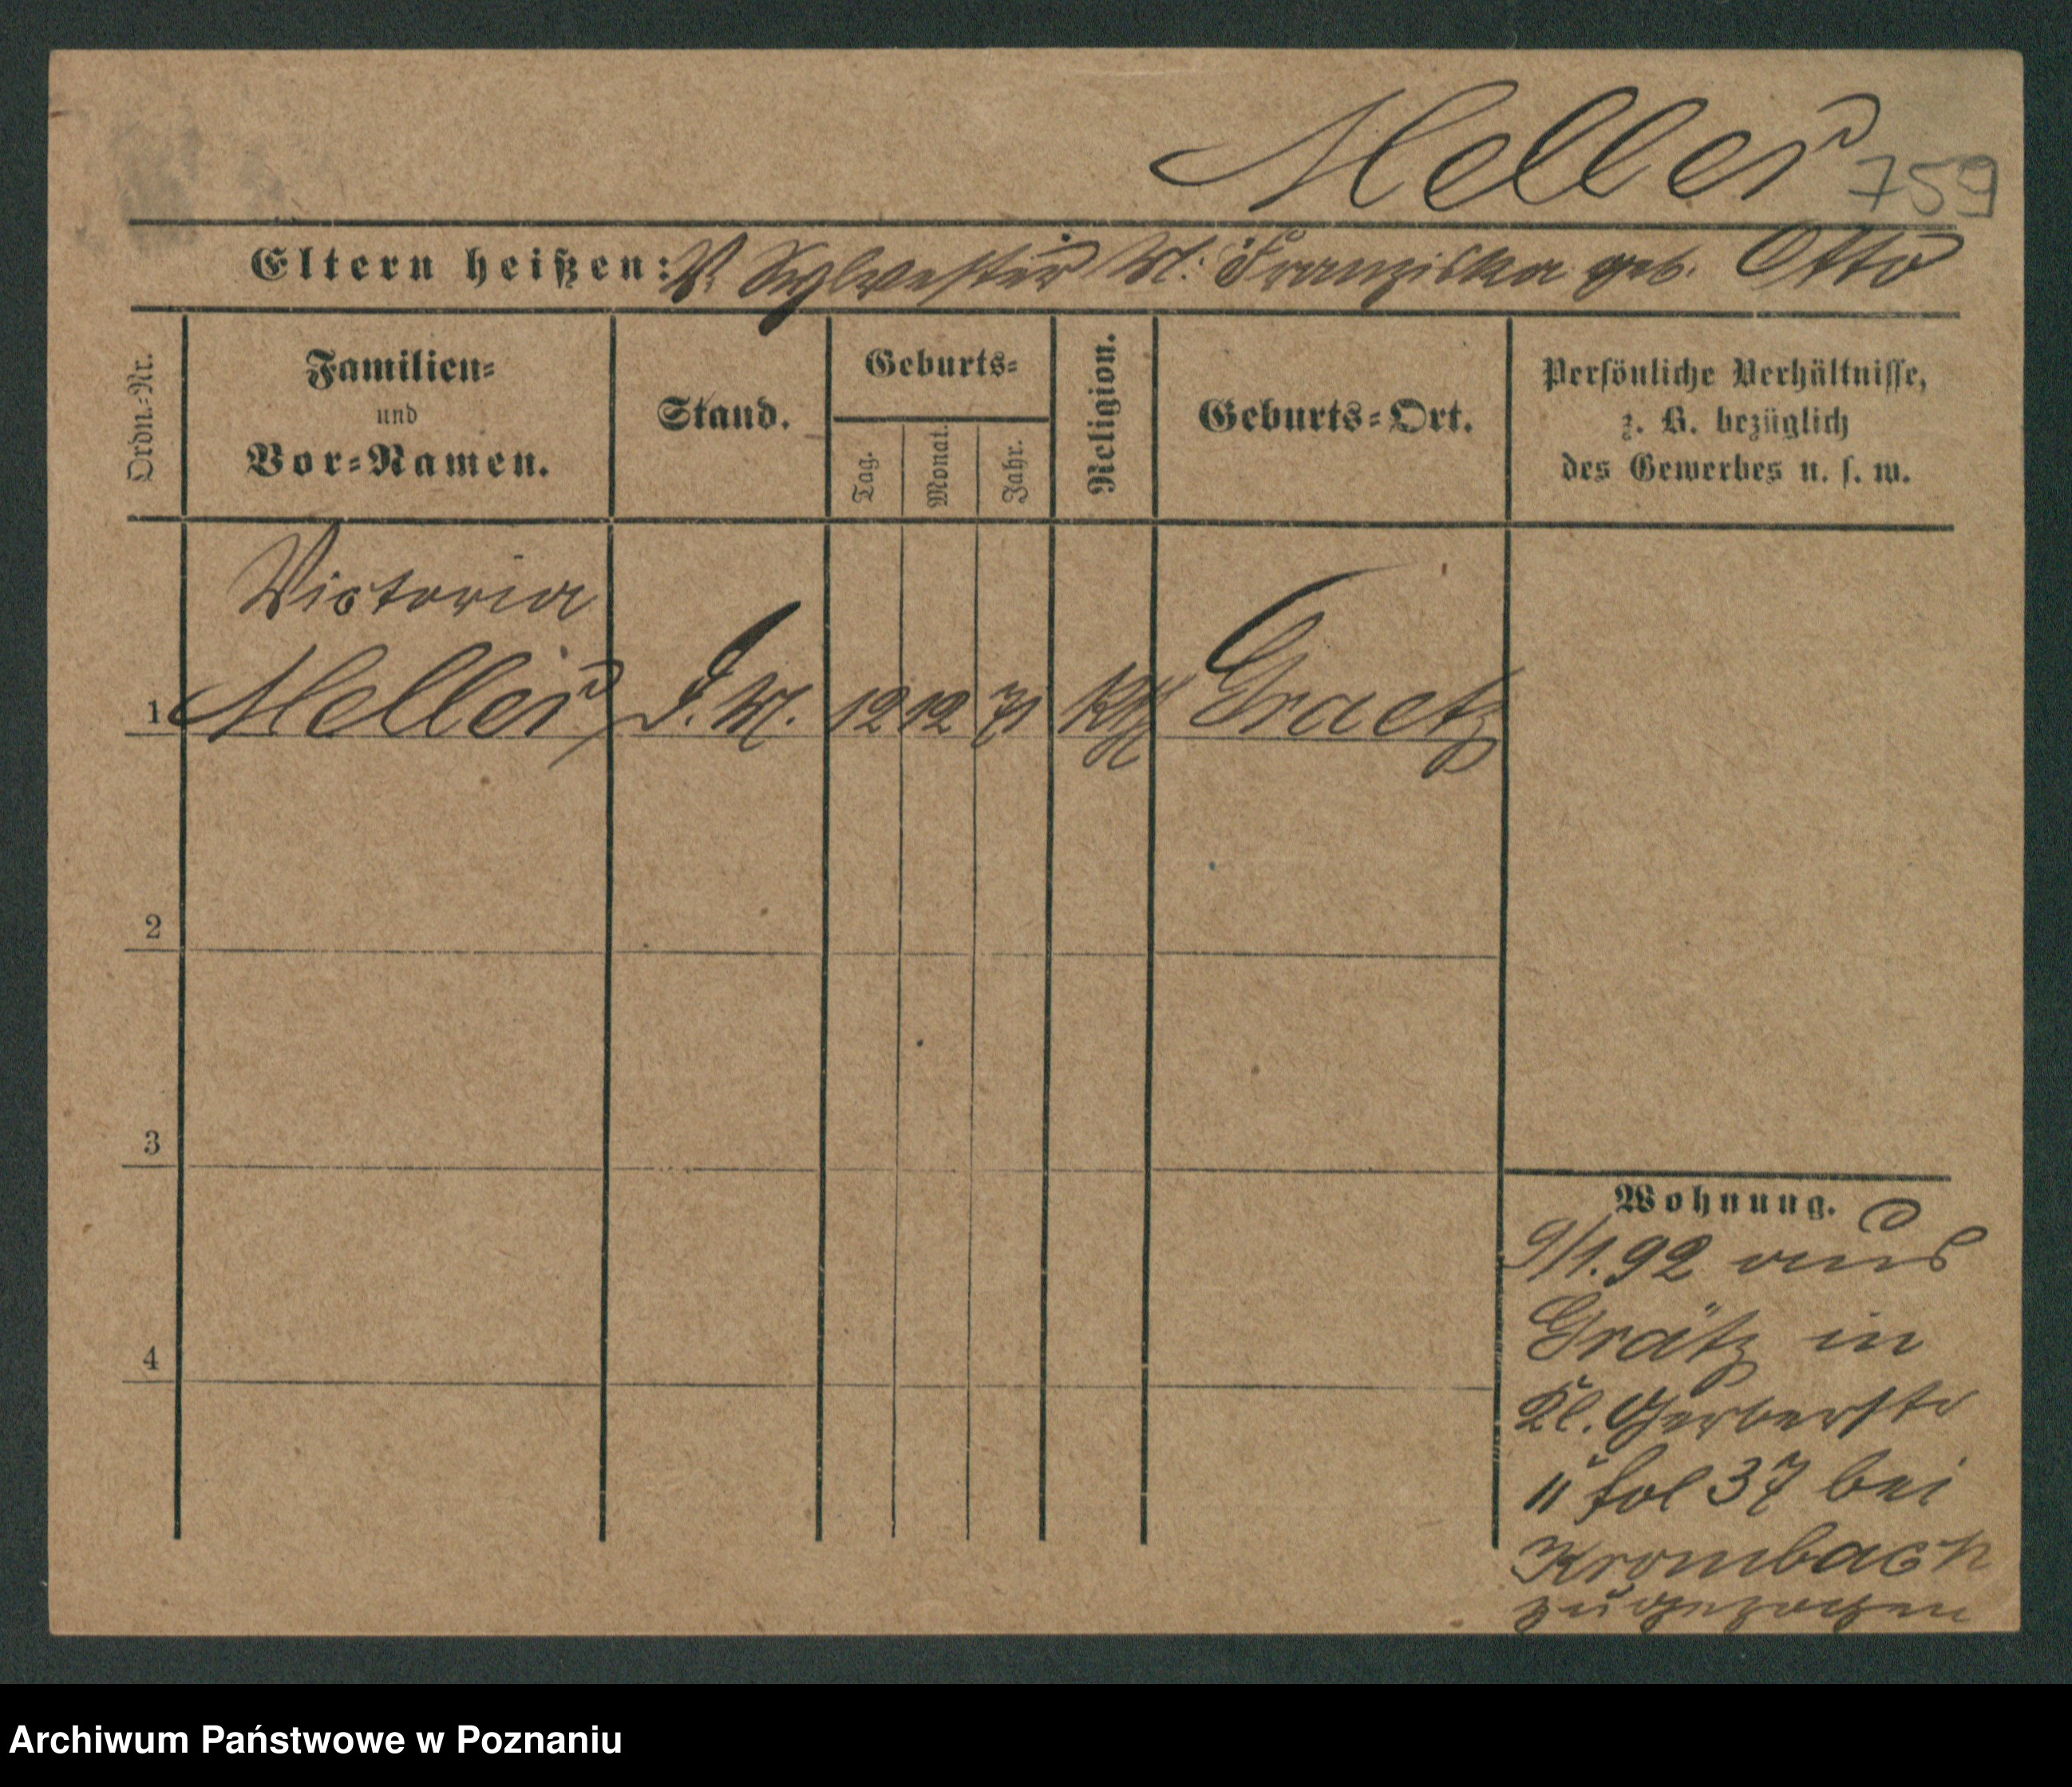 Meller 759
Eltern heißen: V. Sylvester M. Franziska geb. Otto
Ordn.-Nr.
Familien-
und
Vor-Namen.
Stand.
Geburts-
Tag.
Monat.
Jahr.
Religion.
Geburts-Ort.
Persönliche Verhältnisse,
z. B. bezüglich
des Gewerbes u. s. w.
Victoria
1 Meller D. M. 12 12 71 Kth Graetz
2
3
4
Wohnung.
9/1.92 aus
Grätz in
Kl. Gerberstr
11 fol 37 bei
Krombach
zugezogen
Archiwum Państwowe w Poznaniu